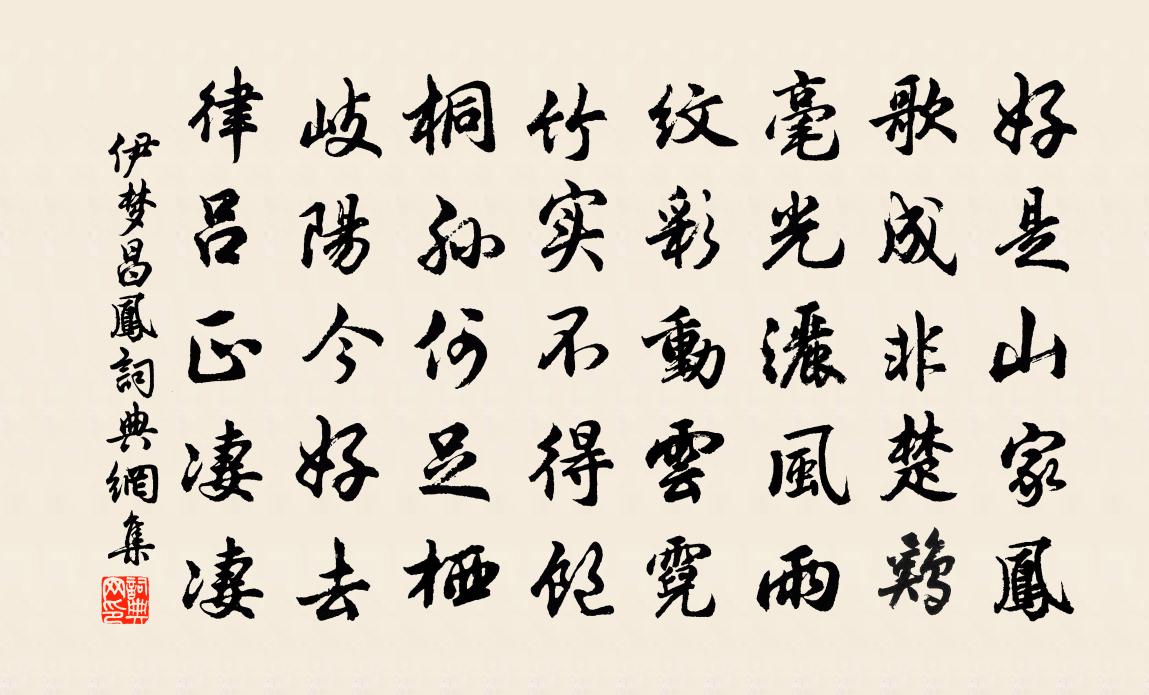 好是山家鳳
歌成非楚鶏
毫光灑風雨
紋彩動雲霓
竹实不得飽
桐孙何足栖
岐陽今好去
律吕正凄凄
伊梦昌鳳詞典網集
詞典
网印